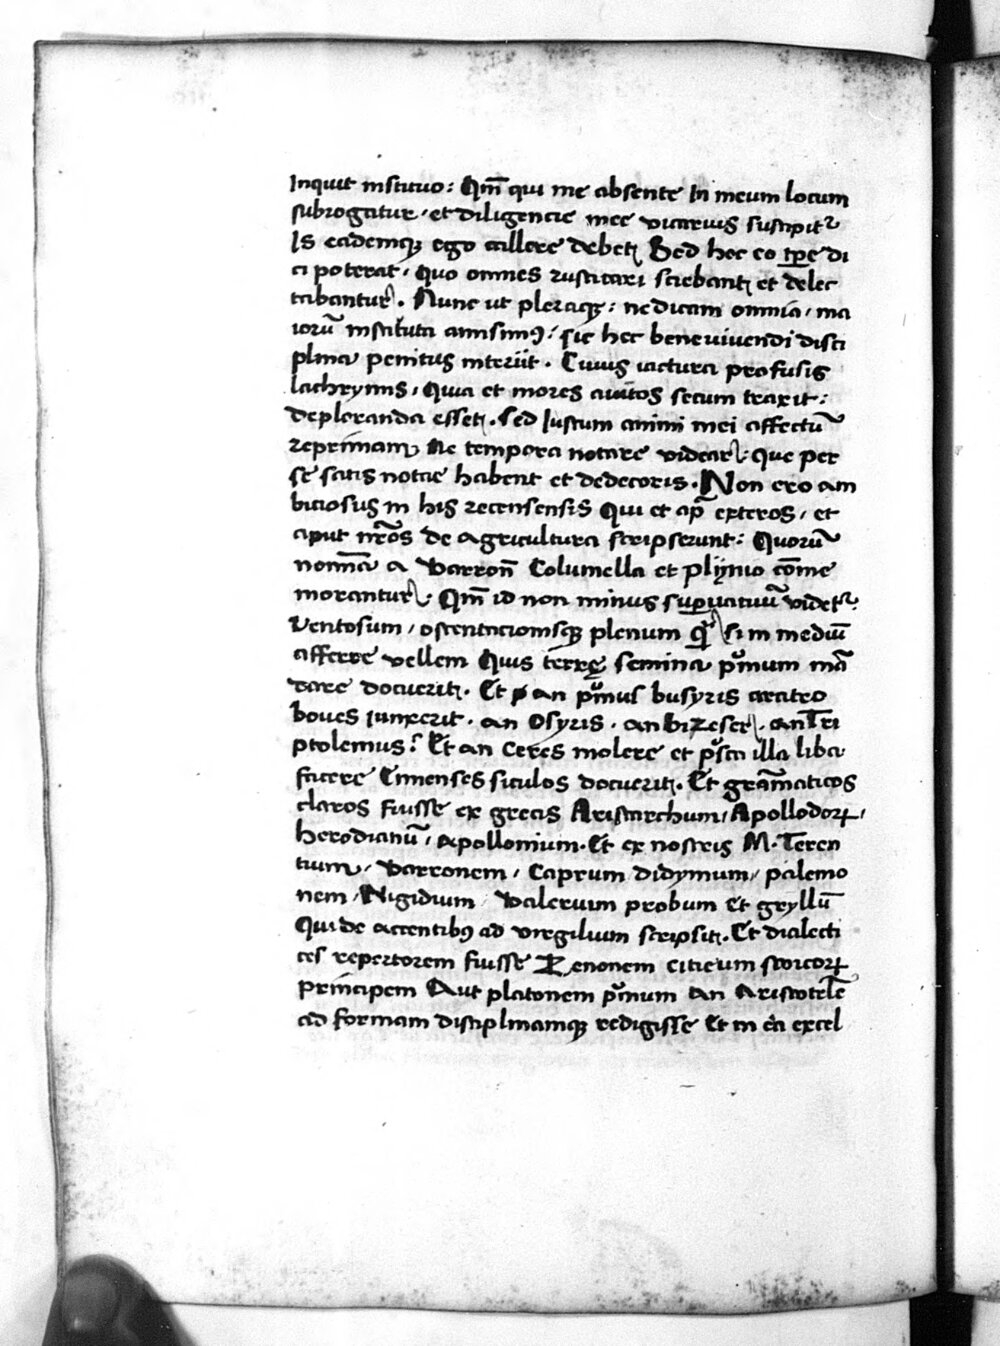 Inquit instituo: Qm̄ qui me absente In meum locum
subrogatur, et diligencie mee vicarius suscipit᷑
Is eademqꝫ ego callere debetꝫ Sed hec eo tp̄e di
ci poterat, quo omnes rusticari sciebantꝫ et delec
tabantur. Nunc ut pleraqꝫ: ne dicam omnia, ma
iorū instituta amisimꝰ, sic hec bene vivendi disci
plina penitus interiit. Cuius iactura profusis
lachrymis, Quia et mores avitos secum traxit:
deploranda essetꝫ. Sed Iustum animi mei affectū
reprimam Ne tempora notare videar: Que per
se satis notae habent et dedecoris. Non ero am
biciosus in his recensensis Qui et ap̄ exteros, et
aput nr̄os de agricultura scripserunt: Quorū
nomīa a Varron̄ Columella et plijnio com̄e
morantur. Qm̄ id non minus suꝑvacuū videt᷑
Ventosum, ostentacionisqꝫ plenum qͣꝫ si in mediū
afferre vellem Quis terrę semina pͥmum mā
dare docueritꝫ. Et an pͥmus busyris aratro
boves iunxerit. an Osyris. an bizeser. an Tri
ptolemus? Et an Ceres molere et pͥsca illa liba
facere Ennenses siculos docueritꝫ. Et grāmaticos
claros fuisse ex grecis Aristarchum, Apollodorꝝ,
herodianū, Apollonium. Et ex nostris M. Teren
tium, Varronem, Caprum didymum, palemo
nem, Nigidium, Valerium probum et gryllū
Qui de accentibꝰ ad virgilium scripsitꝫ. Et dialecti
ces repertorem fuisse Zenonem citieum stoicorꝝ
principem Aut platonem pͥmum an Aristotelē
ad formam disciplinamqꝫ redigisse Et in eā excel